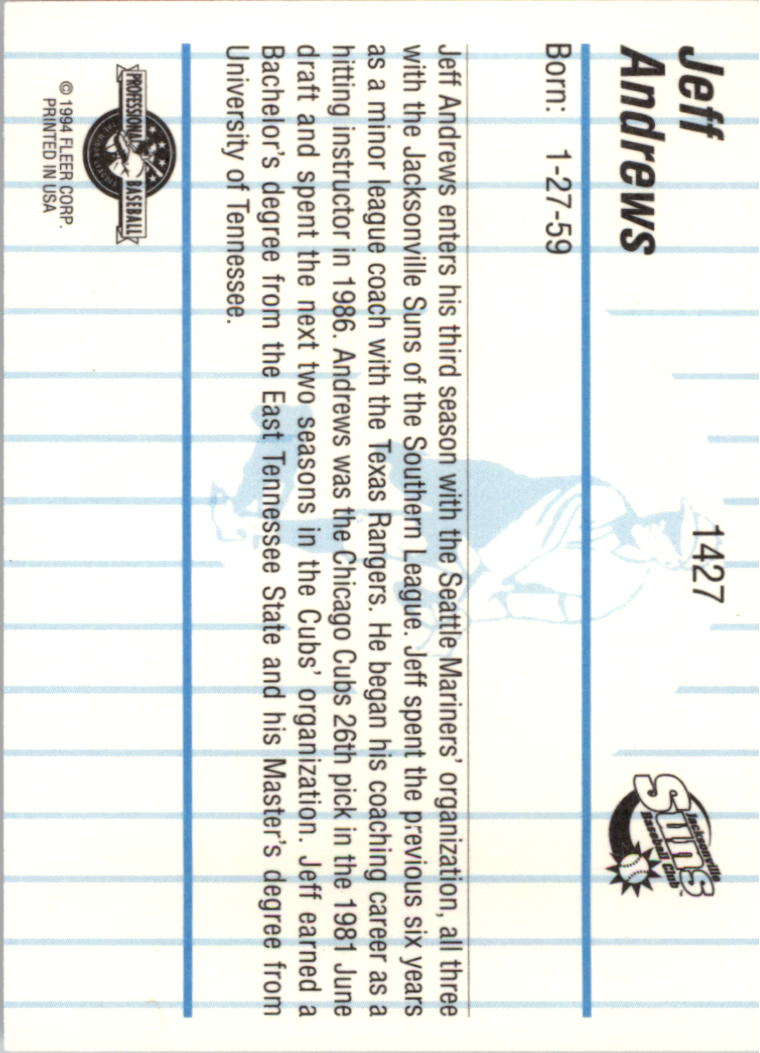 Jeff
Andrews
1427
Jacksonville
Suns
Baseball Club
Born: 1-27-59
Jeff Andrews enters his third season with the Seattle Mariners' organization, all three
with the Jacksonville Suns of the Southern League. Jeff spent the previous six years
as a minor league coach with the Texas Rangers. He began his coaching career as a
hitting instructor in 1986. Andrews was the Chicago Cubs 26th pick in the 1981 June
draft and spent the next two seasons in the Cubs' organization. Jeff earned a
Bachelor's degree from the East Tennessee State and his Master's degree from
University of Tennessee.
PROFESSIONAL BASEBALL
© 1994 FLEER CORP.
PRINTED IN USA